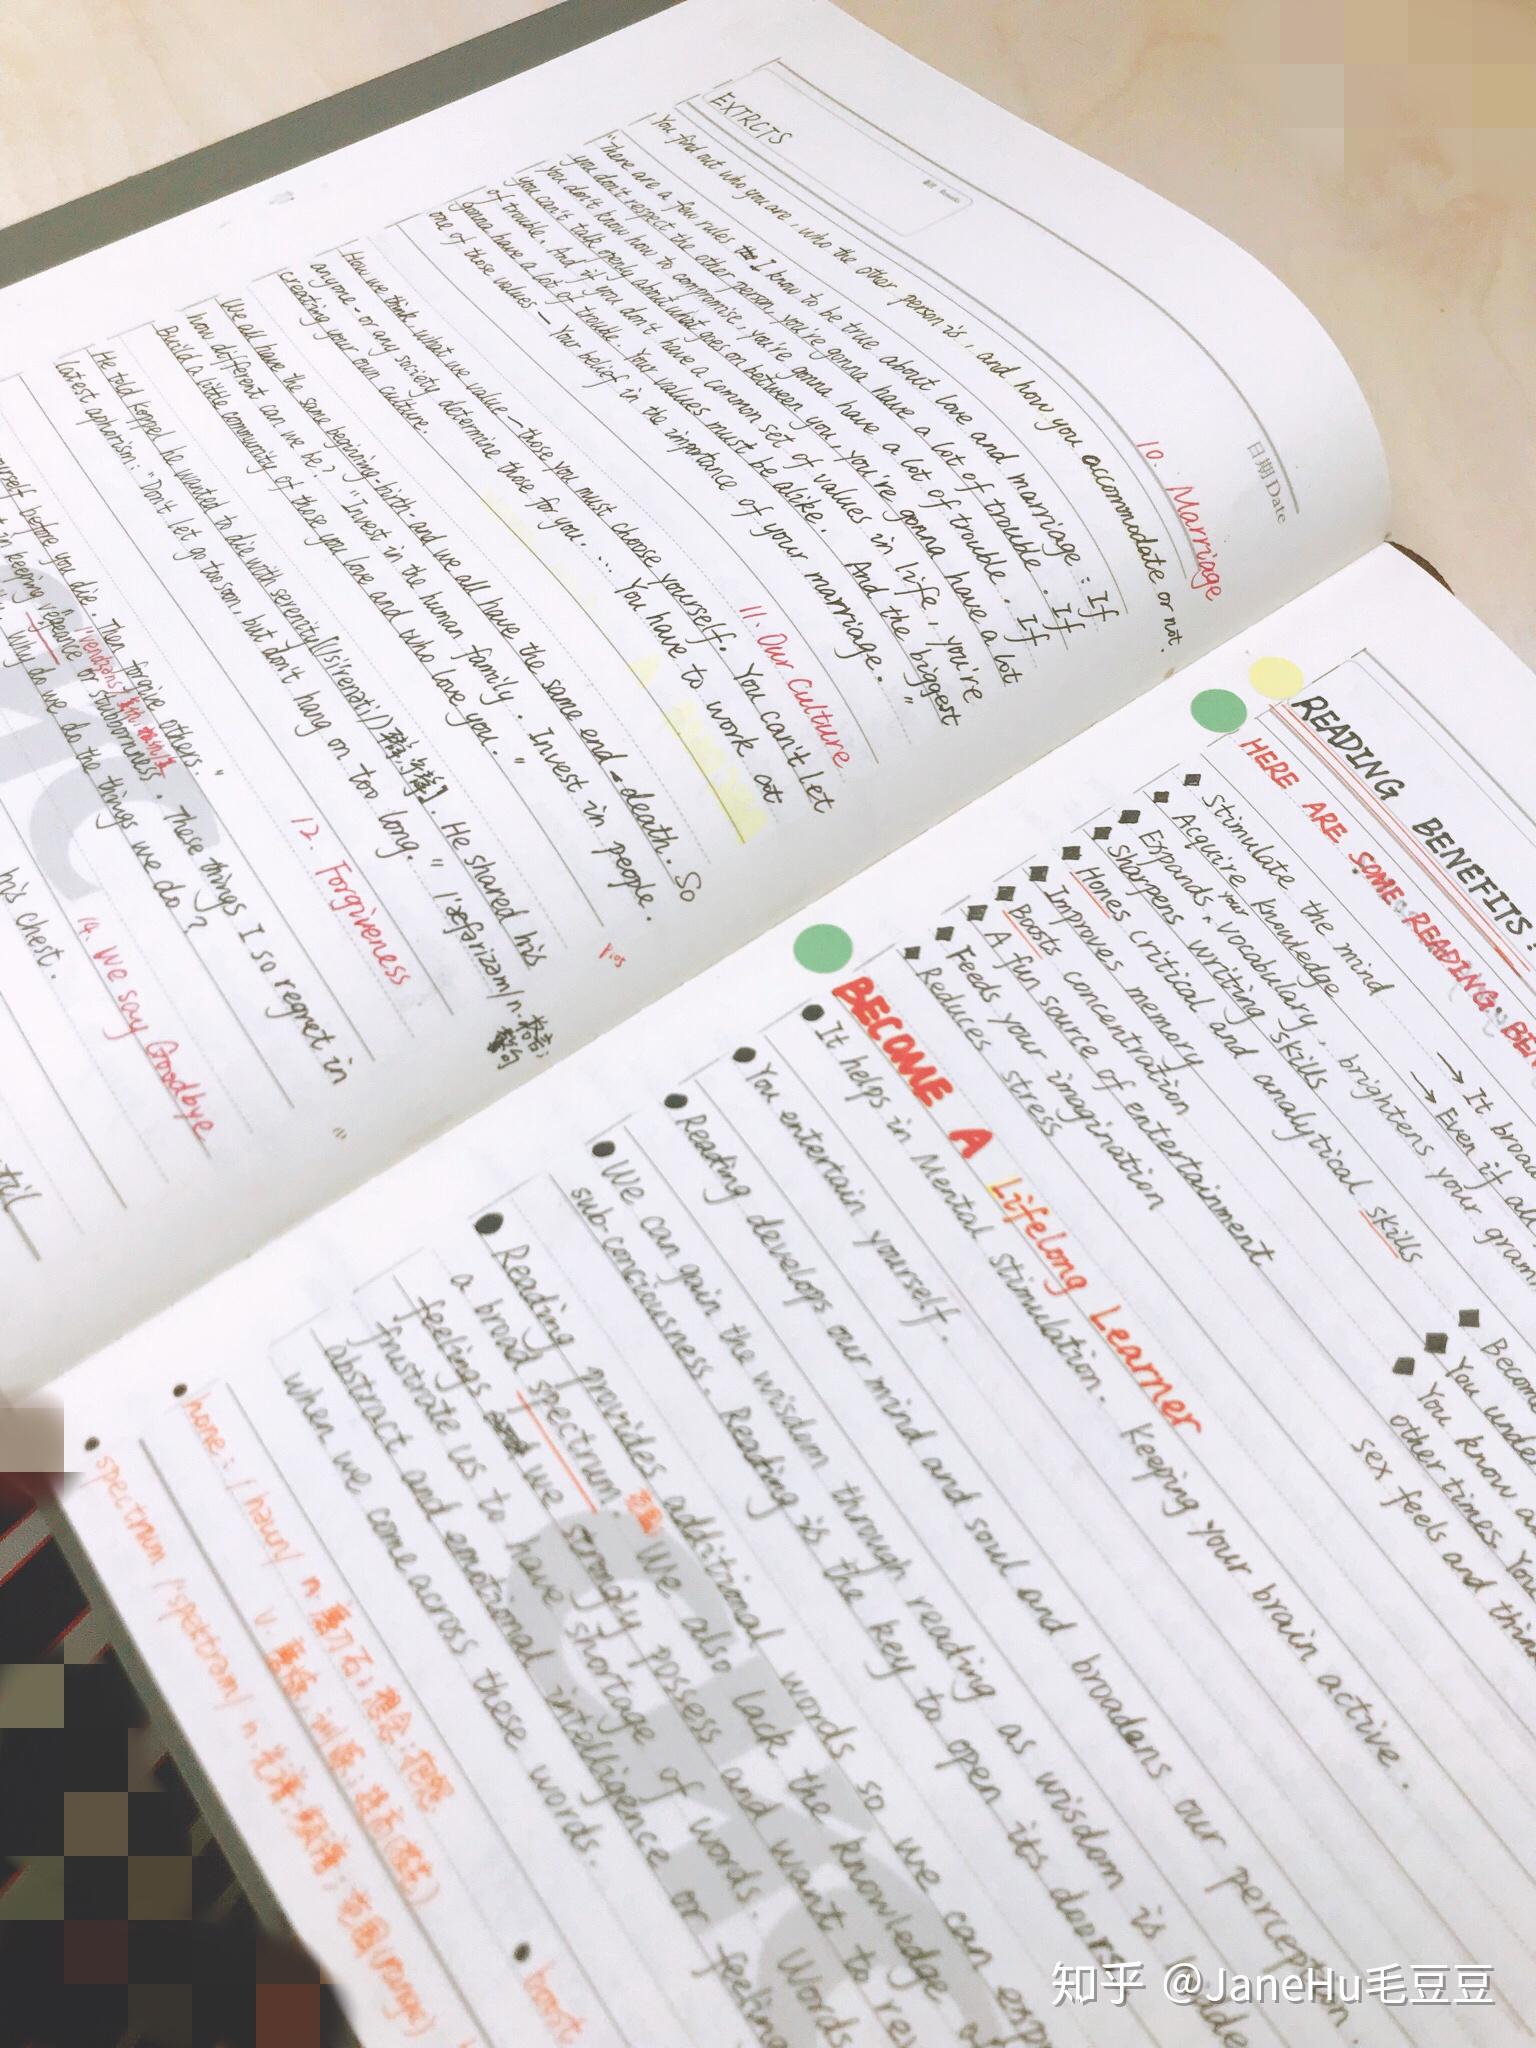 日期 Date
EXTRCTS
10. Marriage
You find out who you are, who the other person is, and how you accommodate or not.
"There are a few rules I know to be true about love and marriage: If
you don't respect the other person, you're gonna have a lot of trouble. If
You don't know how to compromise, you're gonna have a lot of trouble. If
you can't talk openly about what goes on between you, you're gonna have a lot
of trouble. And if you don't have a common set of values in life, you're
gonna have a lot of trouble. Your values must be alike. And the biggest
one of those values — Your belief in the importance of your marriage."
11. Our Culture
How we think, what we value — those you must choose yourself. You can't let
anyone - or any society determine those for you. ... You have to work at
creating your own culture.
We all have the same beginning - birth - and we all have the same end - death. So
how different can we be? "Invest in the human family. Invest in people.
Build a little community of those you love and who love you."
12. Forgiveness
He told koppel he wanted to die with serenity 【 】. He shared his
latest aphorism: "Don't let go too soon, but don't hang on too long." /ˈæfərizəm/ n. 格言; 警句
yourself before you die. Then forgive others."
in keeping vengeance or stubbornness. These things I so regret in
Why do we do the things we do?
14. We say Goodbye
his chest.
READING BENEFITS:
HERE ARE SOME READING BEN
◆ Stimulate the mind
◆ Acquire knowledge
◆ Expands your vocabulary, brightens your gram
◆ Sharpens writing skills
◆ Hones critical and analytical skills
◆ Improves memory
◆ Boosts concentration
◆ A fun source of entertainment
◆ Feeds your imagination
◆ Reduces stress
→ It broad
→ Even if all
◆ Become
◆ You under
◆ You know a
other times. You
sex feels and think
BECOME A Lifelong Learner
● It helps in Mental stimulation. Keeping your brain active.
● You entertain yourself.
● Reading develops our mind and soul and broadens our perception.
● We can gain the wisdom through reading as wisdom is hidde
sub-conciousness. Reading is the key to open its doors
● Reading provides additional words so we can esp
a broad spectrum. We also lack the knowledge of
feelings we strongly possess and want to rev
frustrate us to have shortage of words. Words
abstract and emotional intelligence or feeling
when we come across these words.
● hone: /həun/ n. 磨刀石; 想念; 抱怨
v. 磨炼, 训练; 提高(技艺)
● spectrum /ˈspektrəm/ n. 光谱; 频谱; 范围(range)
● boost
知乎 @JaneHu毛豆豆